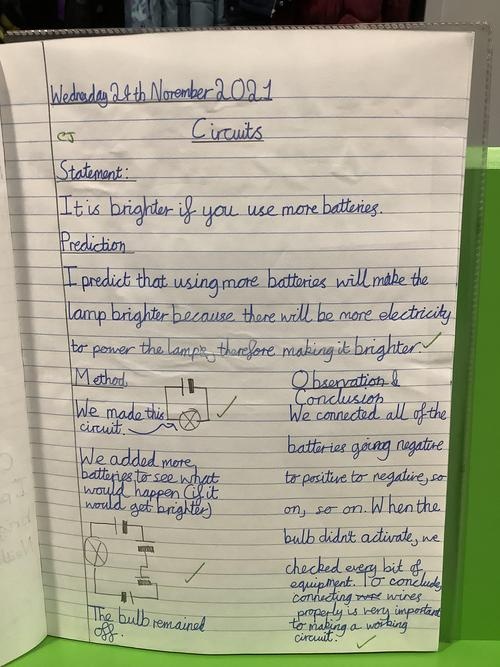 Wednesday 24th November 2021
CJ
Circuits
Statement:
It is brighter if you use more batteries.
Prediction
I predict that using more batteries will make the
lamp brighter because there will be more electricity
to power the lamp, therefore making it brighter.
Method
We made this
circuit.
We added more
batteries to see what
would happen (if it
would get brighter)
The bulb remained
off.
Observation &
Conclusion
We connected all of the
batteries going negative
to positive to negative, so
on, so on. When the
bulb didn't activate, we
checked every bit of
equipment. To conclude,
connecting wires
properly is very important
to making a working
circuit.